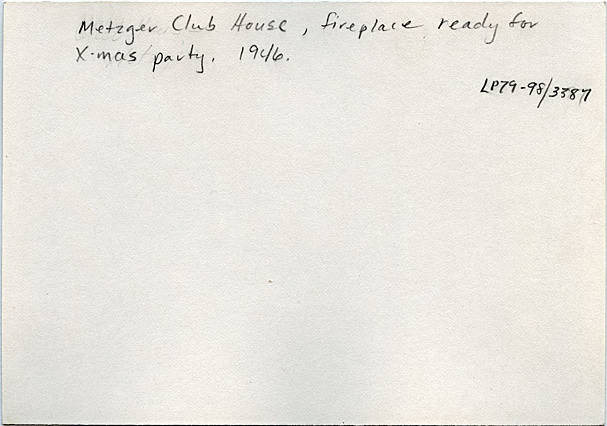 Metzger Club House, fireplace ready for
X-mas party. 1946.
LP79-98/3387